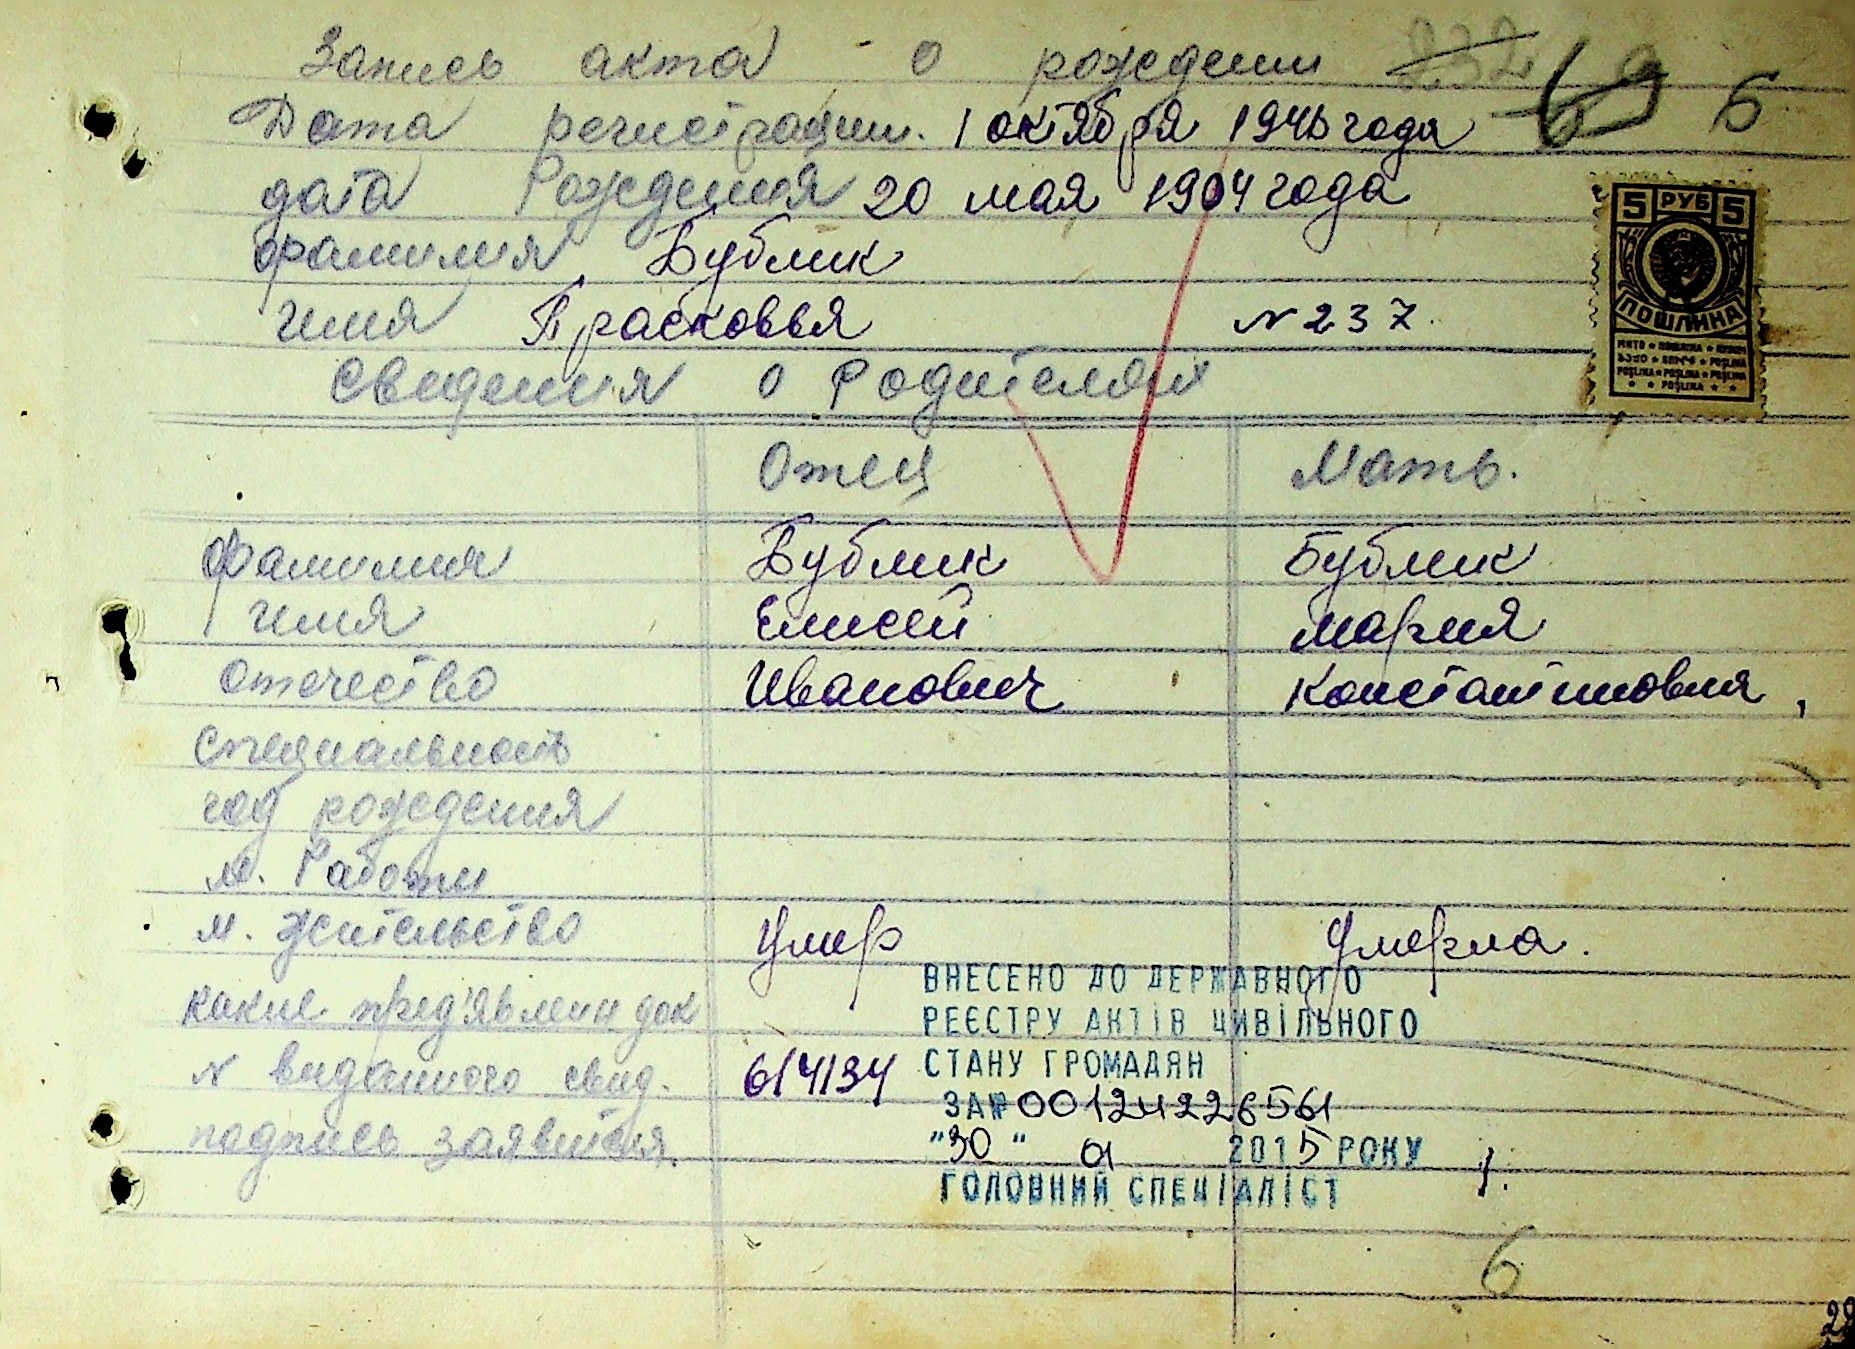 Запись акта о рождении 232 6
Дата регистрации. 1 октября 1946 года
дата рождения 20 мая 1904 года
фамилия Бублик
имя Прасковья N 237.
Сведения о родителях
5 РУБ 5
ПОШЛИНА
Отец Мать.
фамилия Бублик Бублик
имя Елисей Мария
отечество Иванович Константиновна
специальность
год рождения
м. Работи
м. жительство умер умерла.
какие пред'явлени док
N виданного свид. 614134
подпись заявителя.
ВНЕСЕНО ДО ДЕРЖАВНОГО
РЕЄСТРУ АКТІВ ЦИВІЛЬНОГО
СТАНУ ГРОМАДЯН
ЗА№ 00124226561
"30" 2015 РОКУ
ГОЛОВНИЙ СПЕЦІАЛІСТ
6